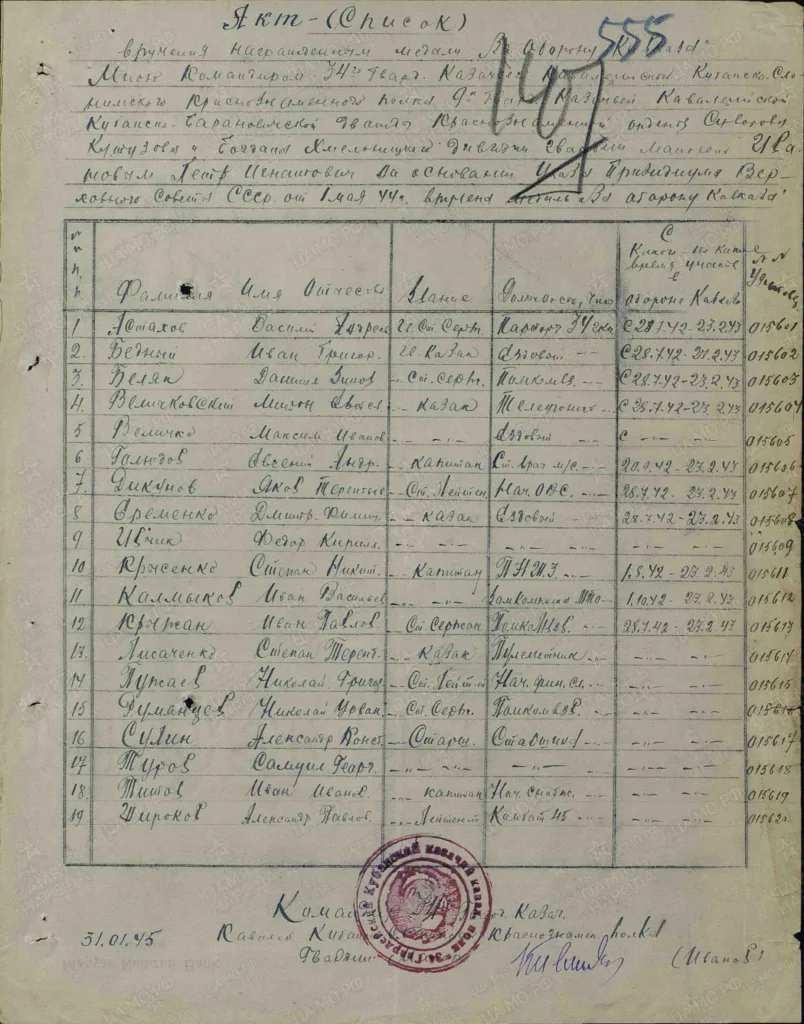 Акт - (Список)
555
вручения награжденным медали "За оборону Кавказа"
147
Мною Командиром 34го Гвард. Казачьего Кавалерийского Кубанско-Сло-
нимского Краснознаменного полка 9й Гвард. Казачьей Кавалерийской
Кубанско-Барановичской дважды Краснознаменной ордена Суворова
Кутузова и Богдана Хмельницкого дивизии Гвардии Майором Ива-
новым Петр Игнатович на основании Указа Президиума Вер-
ховного Совета СССР от 1 мая 44г. вручена медаль "За оборону Кавказа"
Фамилия Имя Отчество Звание Должность, часть С какого - по какое время участв в обороне Кавказа N N Удостов.
1 Астахов Василий Андреев Гв. Ст. Серж. Парторг 34 гкп С 28.7.42-23.2.43 015601
2. Бедный Иван Григор. Гв. Казак Ездовой -- С 28.7.42-23.2.43 015602
3. Беляк Даниил -"- Ст. Серж. Помкомвз. -- С 28.7.42-23.2.43 015603
4. Величковский Мирон Евсев -"- казак Телефонист -- С 28.7.42-23.2.43 015604
5 Величко Максим Иванов -"- -"- Ездовой С -"- 015605
6 Голюдов Евсений Андр. -"- капитан Ст. врач м/с. -- 20.9.42-23.2.43 015606
7. Дикунов Яков Терентье -"- Ст. Лейтен. Нач. ОВС. -- 28.7.42-23.2.43 015607
8 Еременко Дмитр. -"- казак Ездовой -- 28.7.42-23.2.43 015608
9 Ивчик Федор Кирилл. -"- -"- -"- -"- 015609
10 Крысенко Степан Никит. -"- капитан ПНШ 3 -- 1.8.42-23.2.43 015611
11 Калмыков Иван Васильев -"- -"- 1.10.42-23.2.43 015612
12 Крыжан Иван Павлов -"- Ст. Сержан 28.7.42-23.2.43 015613
13. Лисаченко Степан Терент. -"- Казак Пулеметчик -- -"- 015614
14 Пужаев Николай Григор. -"- Ст. Лейт-т Нач. фин. сл. -- -"- 015615
15 Румянцев Николай -"- Ст. Серж. Помкомвзв. -"- 015616
16 Сулин Александр Конст. -"- Старш. Старшина -- -"- 015617
17 Туров Самуил Георг. -"- -"- -"- -"- 015618
18. Титов Иван Иванов -"- капитан Нач. снабж. -- -"- 015619
19 Широков Александр Павлов. -"- Лейтен-т Комбат 45 -- -"- 015620
Гвардейский Кубанский казачий кавал. полк
Казач.
31.01.45 Кавалер. Краснознамен. полка
Гвардии (Иванов)